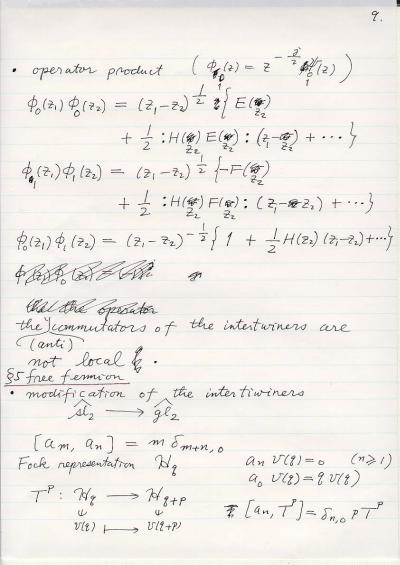 9.
• operator product ( φ_0(z) = z^{-∂/2} φ_1(z) )
φ_0(z_1) φ_0(z_2) = (z_1-z_2)^{1/2} { E(z_2)
+ 1/2 :H(z_2) E(z_2): (z_1-z_2) + ··· }
φ_1(z_1) φ_1(z_2) = (z_1-z_2)^{1/2} { -F(z_2)
+ 1/2 :H(z_2) F(z_2): (z_1-z_2) + ··· }
φ_0(z_1) φ_1(z_2) = (z_1-z_2)^{-1/2} { 1 + 1/2 H(z_2) (z_1-z_2) + ··· }
the (anti) commutators of the intertwiners are
not local .
§5 free fermion
• modification of the intertiwiners
\hat{sl}_2 ⟶ \hat{gl}_2
[a_m, a_n] = m δ_{m+n,0}
Fock representation H_q a_n v(q) = 0 (n ≥ 1)
a_0 v(q) = q v(q)
T^p : H_q ⟶ H_{q+p} [a_n, T^p] = δ_{n,0} p T^p
v(q) ⟼ v(q+p)